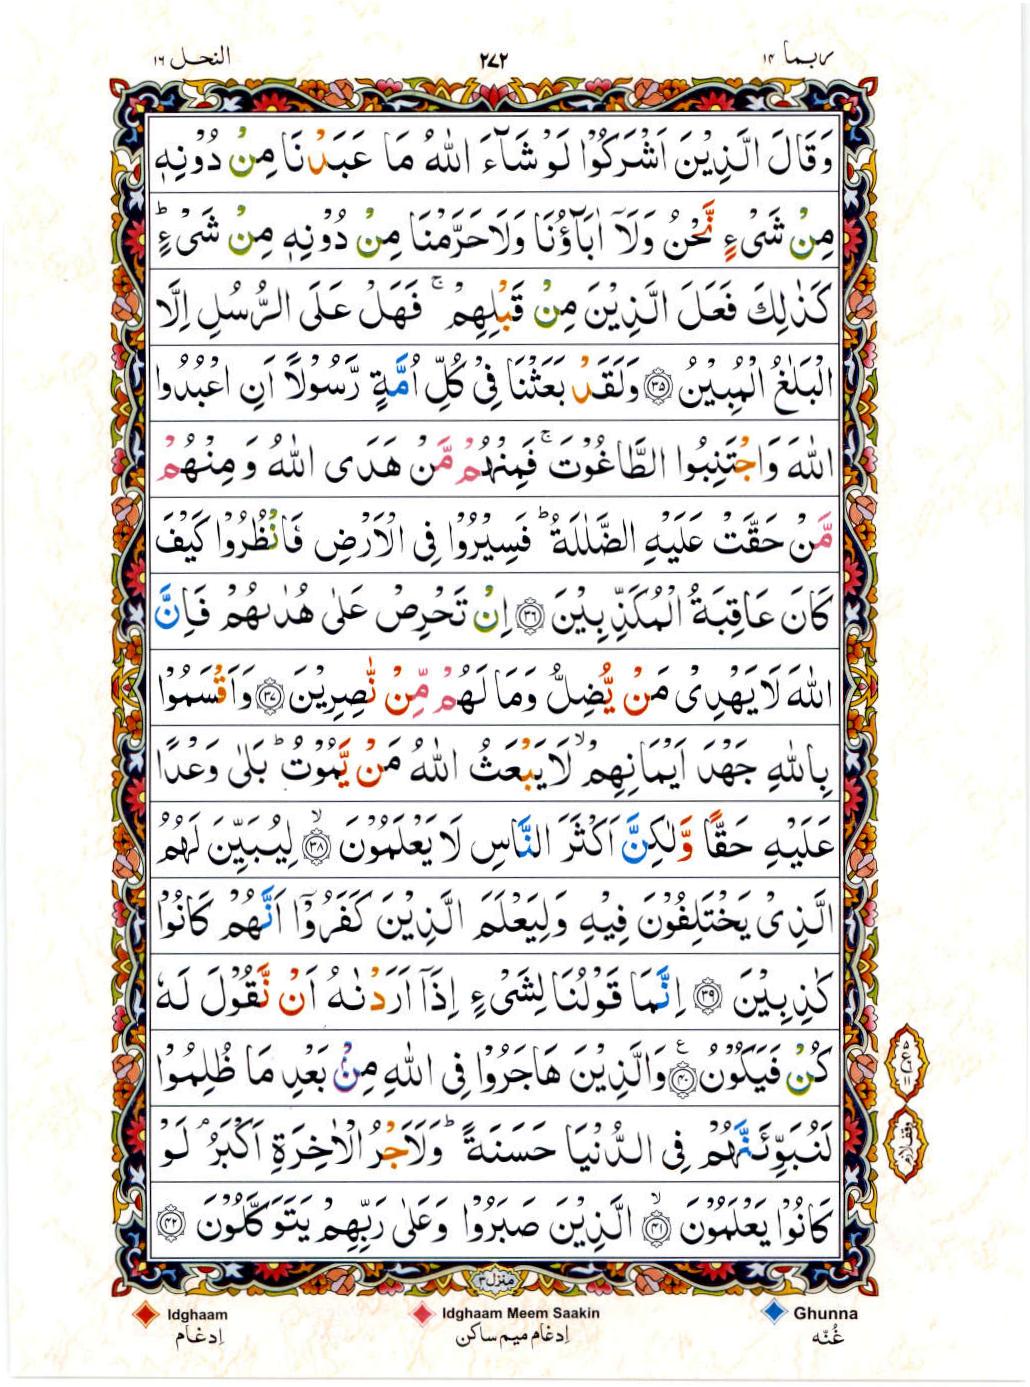 ربما ۱۴
۲۷۲
النحل ۱۶
وَقَالَ الَّذِيْنَ اَشْرَكُوْا لَوْ شَآءَ اللّٰهُ مَا عَبَدْنَا مِنْ دُوْنِهٖ
مِنْ شَیْءٍ نَّحْنُ وَلَاۤ اٰبَآؤُنَا وَلَا حَرَّمْنَا مِنْ دُوْنِهٖ مِنْ شَیْءٍ ؕ
كَذٰلِكَ فَعَلَ الَّذِيْنَ مِنْ قَبْلِهِمْ ۚ فَهَلْ عَلَى الرُّسُلِ اِلَّا
الْبَلٰغُ الْمُبِيْنُ ﴿۳۵﴾ وَلَقَدْ بَعَثْنَا فِیْ كُلِّ اُمَّةٍ رَّسُوْلًا اَنِ اعْبُدُوا
اللّٰهَ وَاجْتَنِبُوا الطَّاغُوْتَ ۚ فَمِنْهُمْ مَّنْ هَدَى اللّٰهُ وَمِنْهُمْ
مَّنْ حَقَّتْ عَلَيْهِ الضَّلٰلَةُ ؕ فَسِيْرُوْا فِى الْاَرْضِ فَانْظُرُوْا كَيْفَ
كَانَ عَاقِبَةُ الْمُكَذِّبِيْنَ ﴿۳۶﴾ اِنْ تَحْرِصْ عَلٰى هُدٰىهُمْ فَاِنَّ
اللّٰهَ لَا يَهْدِىْ مَنْ يُّضِلُّ وَمَا لَهُمْ مِّنْ نّٰصِرِيْنَ ﴿۳۷﴾ وَاَقْسَمُوْا
بِاللّٰهِ جَهْدَ اَيْمَانِهِمْ ۙ لَا يَبْعَثُ اللّٰهُ مَنْ يَّمُوْتُ ؕ بَلٰى وَعْدًا
عَلَيْهِ حَقًّا وَّلٰكِنَّ اَكْثَرَ النَّاسِ لَا يَعْلَمُوْنَ ﴿۳۸﴾ ۙ لِيُبَيِّنَ لَهُمُ
الَّذِىْ يَخْتَلِفُوْنَ فِيْهِ وَلِيَعْلَمَ الَّذِيْنَ كَفَرُوْۤا اَنَّهُمْ كَانُوْا
كٰذِبِيْنَ ﴿۳۹﴾ اِنَّمَا قَوْلُنَا لِشَیْءٍ اِذَاۤ اَرَدْنٰهُ اَنْ نَّقُوْلَ لَهٗ
كُنْ فَيَكُوْنُ ﴿۴۰﴾ ع وَالَّذِيْنَ هَاجَرُوْا فِى اللّٰهِ مِنْۢ بَعْدِ مَا ظُلِمُوْا
لَنُبَوِّئَنَّهُمْ فِى الدُّنْيَا حَسَنَةً ؕ وَلَاَجْرُ الْاٰخِرَةِ اَكْبَرُ ۘ لَوْ
كَانُوْا يَعْلَمُوْنَ ﴿۴۱﴾ ۙ الَّذِيْنَ صَبَرُوْا وَعَلٰى رَبِّهِمْ يَتَوَكَّلُوْنَ ﴿۴۲﴾
۵ ع ۱۱
وقف لازم
منزل ۳
Idghaam
Idghaam Meem Saakin
Ghunna
اِدغام
اِدغام میم ساکن
غُنّه